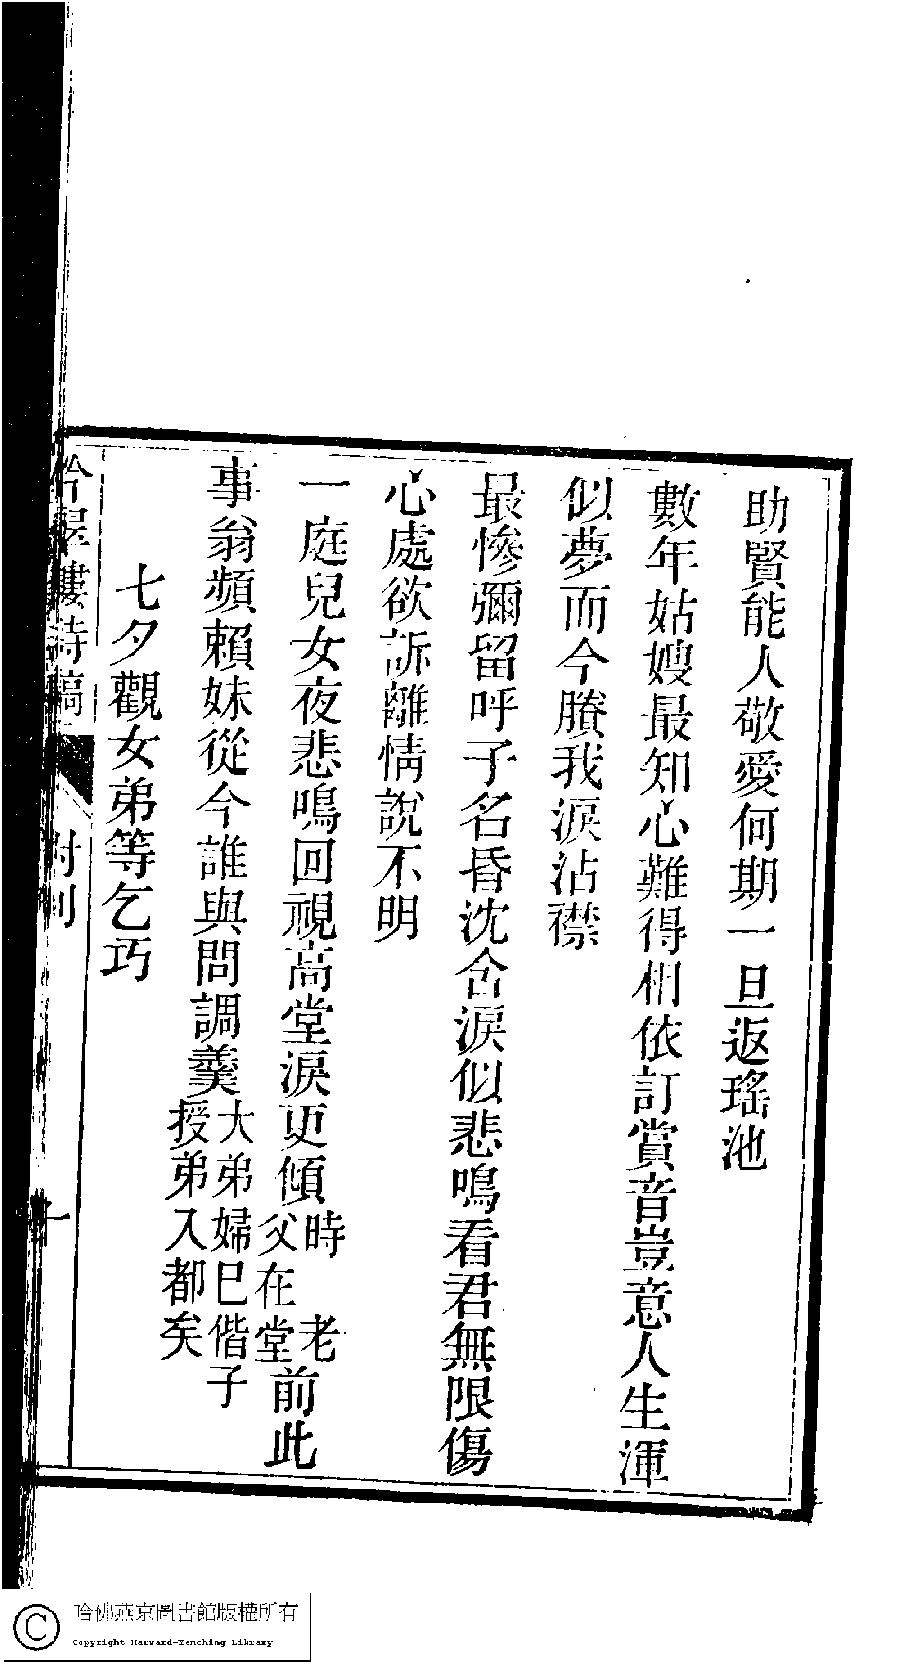 助賢能人敬愛何期一旦返瑤池
數年姑嫂最知心難得相依訂賞音豈意人生渾
似夢而今賸我淚沾襟
最慘彌留呼子名昏沈含淚似悲鳴看君無限傷
心處欲訴離情說不明
一庭兒女夜悲鳴回視高堂淚更傾時老父在堂前此
事翁頻賴妹從今誰與問調羹大弟婦巳偕子授弟入都矣
七夕觀女弟等乞巧
樓詩稿
附刊
哈佛燕京圖書館版權所有
Copyright Harvard-Yenching Library